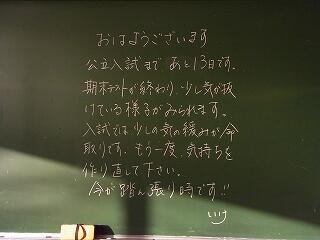 おはようございます
公立入試まで、あと13日です。
期末テストが終わり、少し気が抜
けている様子がみられます。
入試では少しの気の緩みが命
取りです。もう一度、気持ちを
作り直して下さい。
今が踏ん張り時です!!
いけ